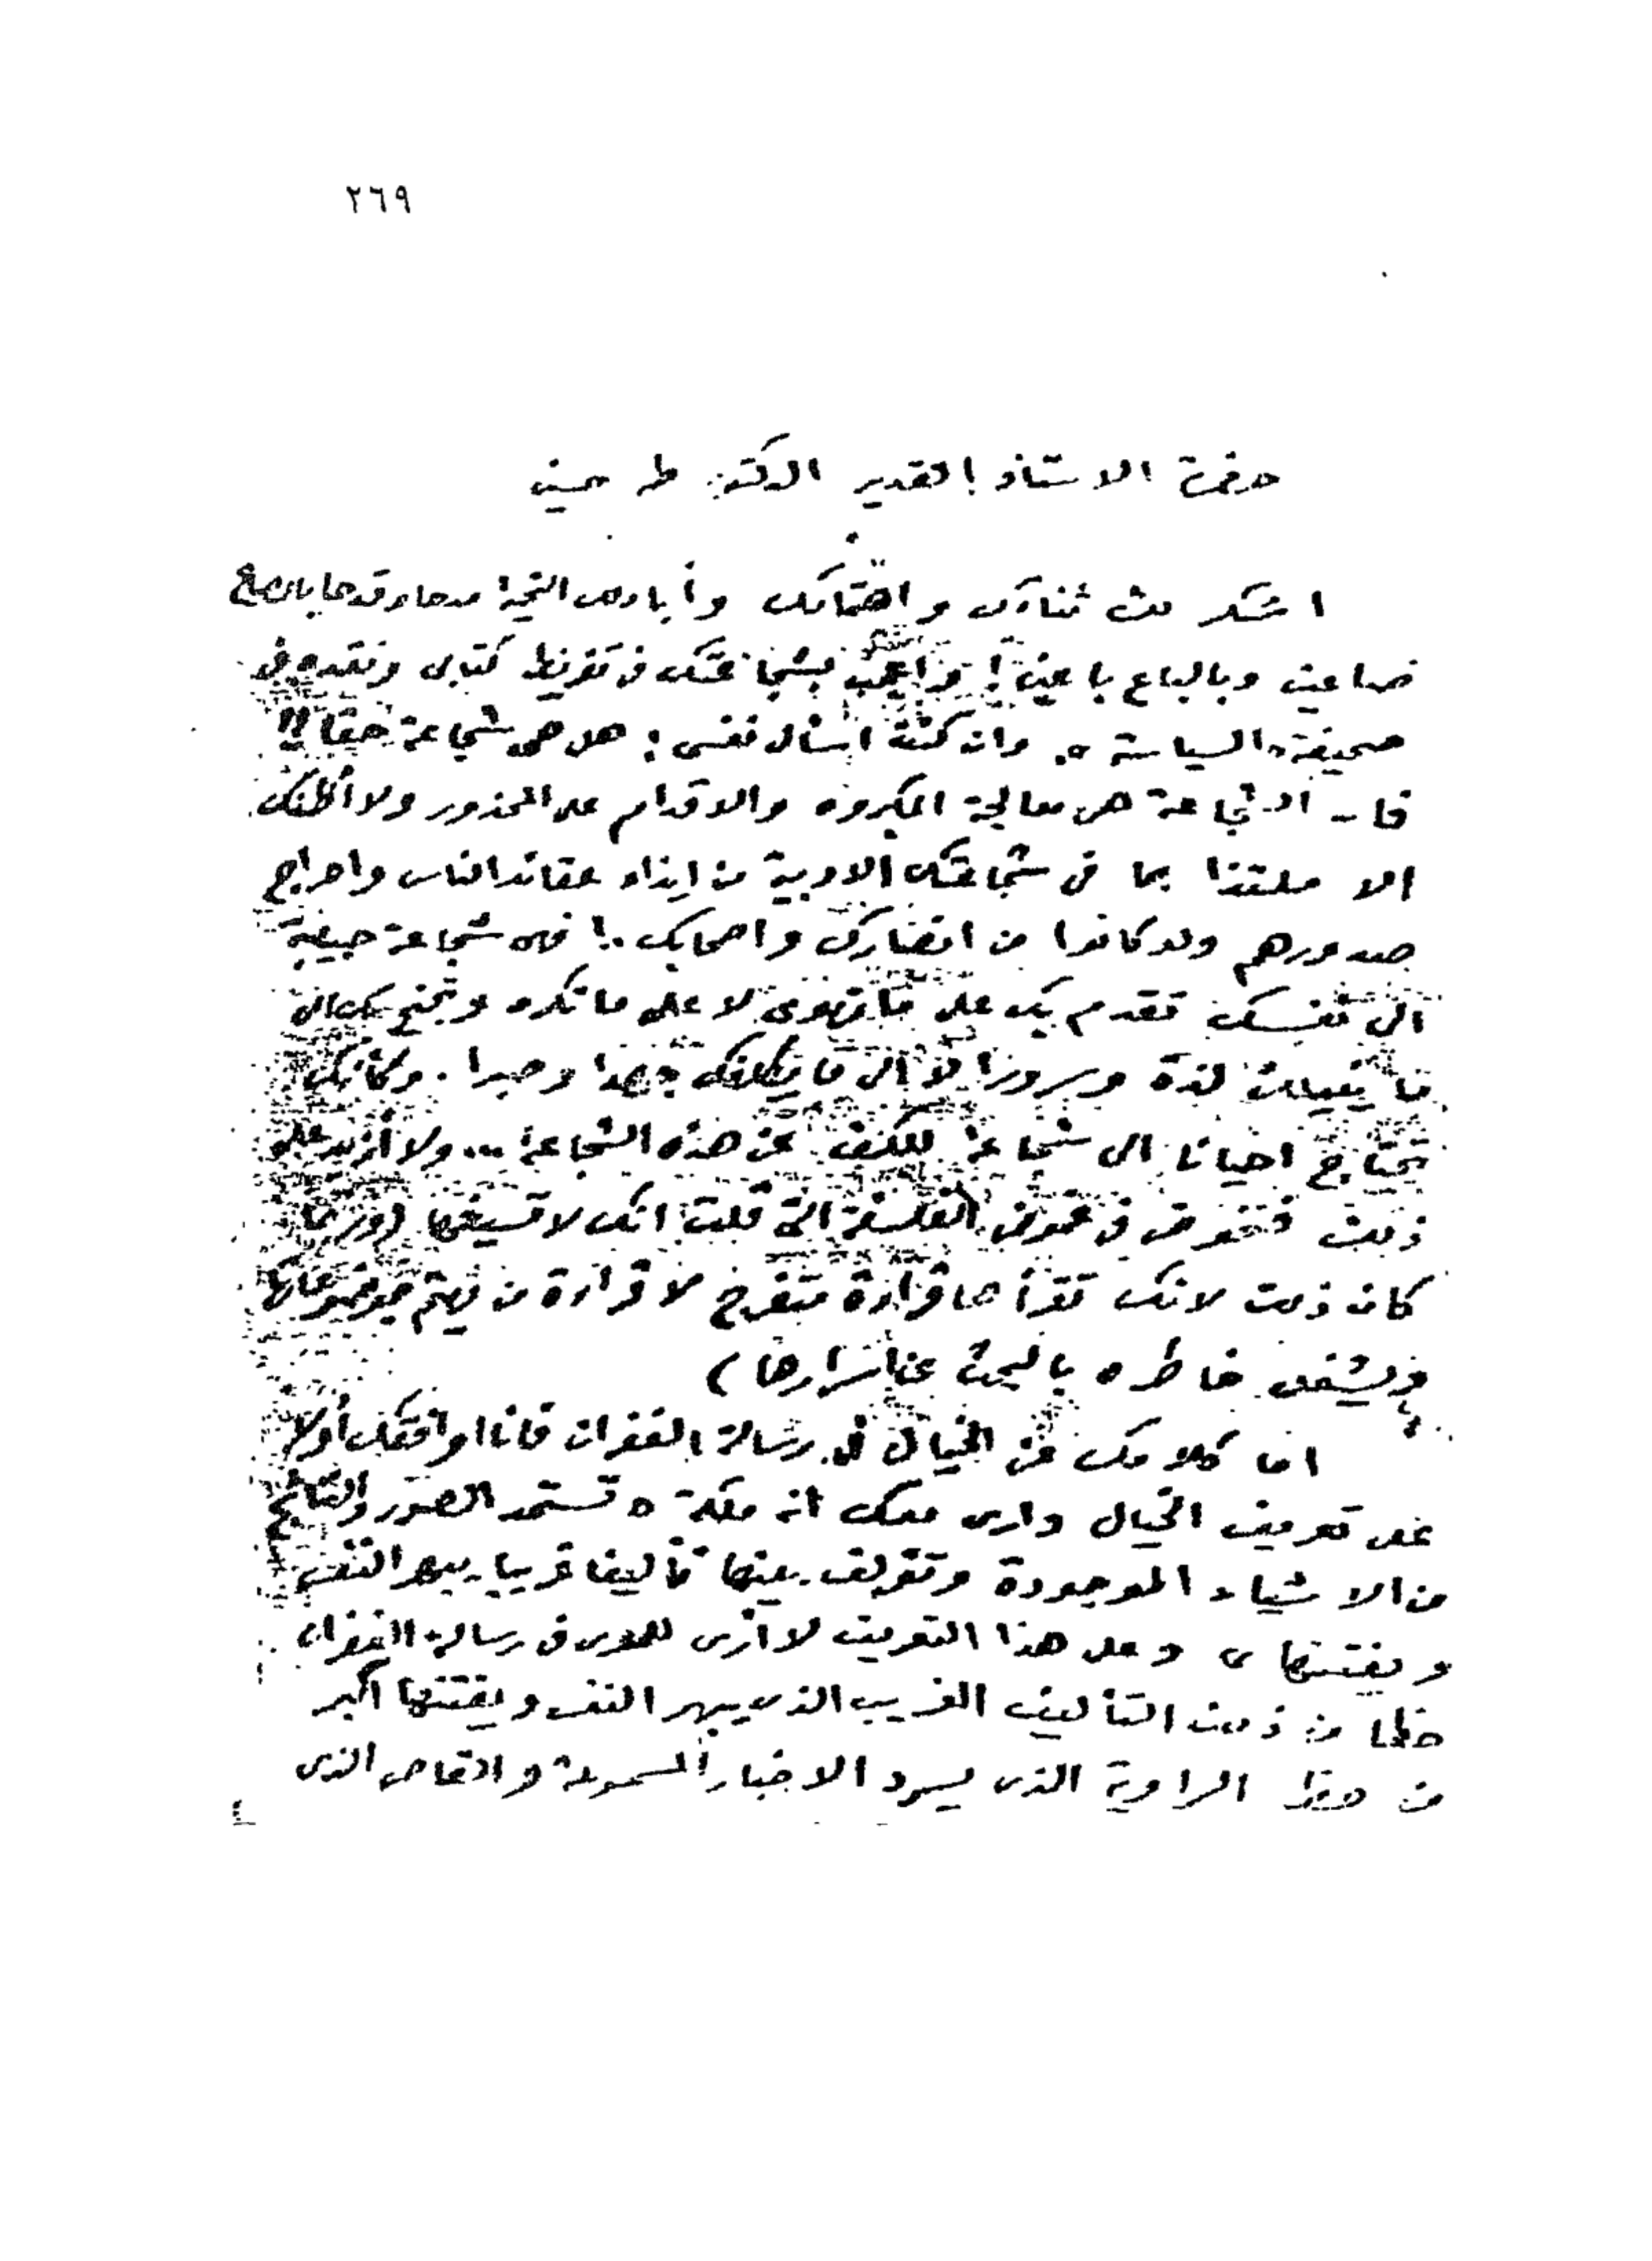 ٢٦٩
حضرة الاستاذ القدير الدكتور طه حسين
اشكر لك ثناءك واهتمامك وأبادلك التحية مدحا وقدحا بالصاع
صاعين وبالباع باعين! واعجب بشجاعتك في تقريظ كتابى ونقده فى
صحيفة « السياسة ». وان كنت اسأل نفسى: هل هى شجاعة حقا؟!
فان الشجاعة هى معالجة المكروه والاقدام على المحذور ولا أظنك
الا ملتذا بما فى شجاعتك الادبية من ايذاء عقائد الناس واحراج
صدورهم ولو كانوا من انصارك واصحابك..! فهى شجاعة حبيبة
الى نفسك تقدم بك على ما تهوى لا على ما تكره وتجنح بك الى
ما ينيلك لذة وسرورا لا الى ما يكلفك جهدا وصبرا. وكأنك
تحتاج احيانا الى شجاعة للكف عن هذه الشجاعة... ولا أزيد على
ذلك فنخوض فى غموض الفلسفة التى قلت انك لا تسيغها (وربما
كان ذلك لانك تقرأها قراءة متفرج لا قراءة من يهتم بموضوعاتها
ويشغل خاطره بالبحث عن اسرارها)
اما كلامك عن الخيال فى رسالة الغفران فأنا اوافقك أولا
على تعريف الخيال وارى معك انه ملكة « تستمد الصور والنتائج
من الاشياء الموجودة وتؤلف بينها تأليفا غريبا يبهر النفس
ويفتنها » وعلى هذا التعريف لا أرى للمعرى فى رسالة الغفران
حظا من ذلك التأليف الغريب الذى يبهر النفس ويفتنها اكبر
من حظ الراوية الذى يسرد الاخبار المسموعة والقصاص الذى